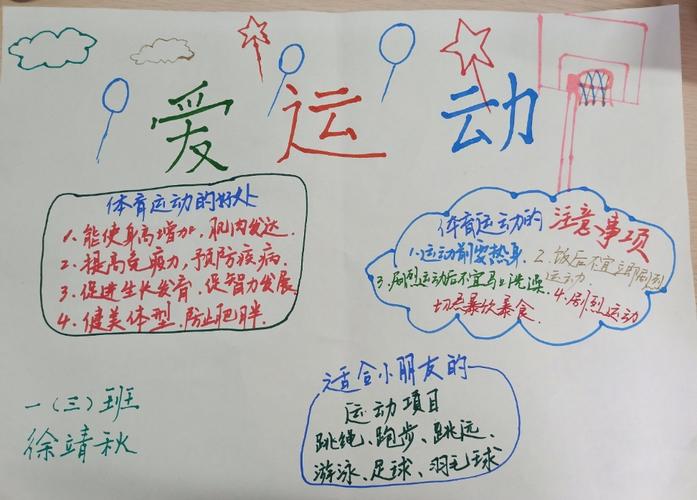 爱运动
体育运动的好处
1、能使身高增加，肌肉发达.
2、提高免疫力，预防疾病.
3、促进生长发育，促智力发展
4、健美体型，防止肥胖.
体育运动的注意事项
1、运动前要热身. 2、饭后不宜立即剧烈
3、剧烈运动后不宜马上洗澡. 运动.
切忌暴饮暴食. 4、剧烈运动
适合小朋友的
运动项目
跳绳、跑步、跳远、
游泳、足球、羽毛球
一（三）班
徐靖秋